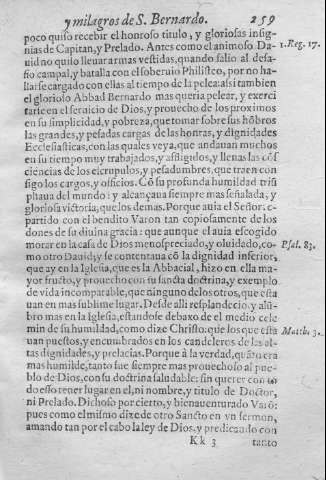 y milagros de S. Bernardo. 259
poco quiso recebir el honroso titulo, y gloriosas insig-
nias de Capitan, y Prelado. Antes como el animoso Da-
uid no quiso lleuar armas vestidas, quando salio al desa-
fio campal, y batalla con el soberuio Philisteo, por no ha-
llarse cargado con ellas al tiempo de la pelea: assi tambien
el glorioso Abbad Bernardo mas queria pelear, y exerci
tarse en el seruicio de Dios, y prouecho de los proximos
en su simplicidad, y pobreza, que tomar sobre sus hõbros
las grandes, y pesadas cargas de las honras, y dignidades
Ecclesiasticas, con las quales veya, que andauan muchos
en su tiempo muy trabajados, y afligidos, y llenas las cõs
ciencias de los escrupulos, y pesadumbres, que traen con
sigo los cargos, y officios. Cõ su profunda humildad triũ
phaua del mundo: y alcançaua siempre mas señalada, y
gloriosa victoria, que los demas. Porque auia el Señor re
partido con el bendito Varon tan copiosamente de los
dones de su diuina gracia: que aunque el auia escogido
morar en la casa de Dios menospreciado, y oluidado, co-
mo otro Dauid, y se contentaua cõ la dignidad inferior,
que ay en la Iglesia, que es la Abbacial, hizo en ella ma-
yor fructo, y prouecho con su sancta doctrina, y exemplo
de vida incomparable, que ninguno de los otros, que esta
uan en mas sublime lugar. Desde alli resplandecio, y alũ-
bro mas en la Iglesia, estandose debaxo de el medio cele
min de su humildad, como dize Christo: que los que esta
uan puestos, y encumbrados en los candeleros de las al-
tas dignidades, y prelacias. Porque à la verdad, quãto era
mas humilde, tanto fue siempre mas prouechoso al pue-
blo de Dios, con su doctrina saludable: sin querer con to
do esso tener lugar en el, ni nombre, y titulo de Doctor,
ni Prelado. Dichoso por cierto, y bienauenturado Varõ:
pues como el mismo dize de otro Sancto en vn sermon,
amando tan por el cabo la ley de Dios, y predicando con
Kk 3 tanto
1. Reg. 17.
Psal. 83.
Matth. 3.